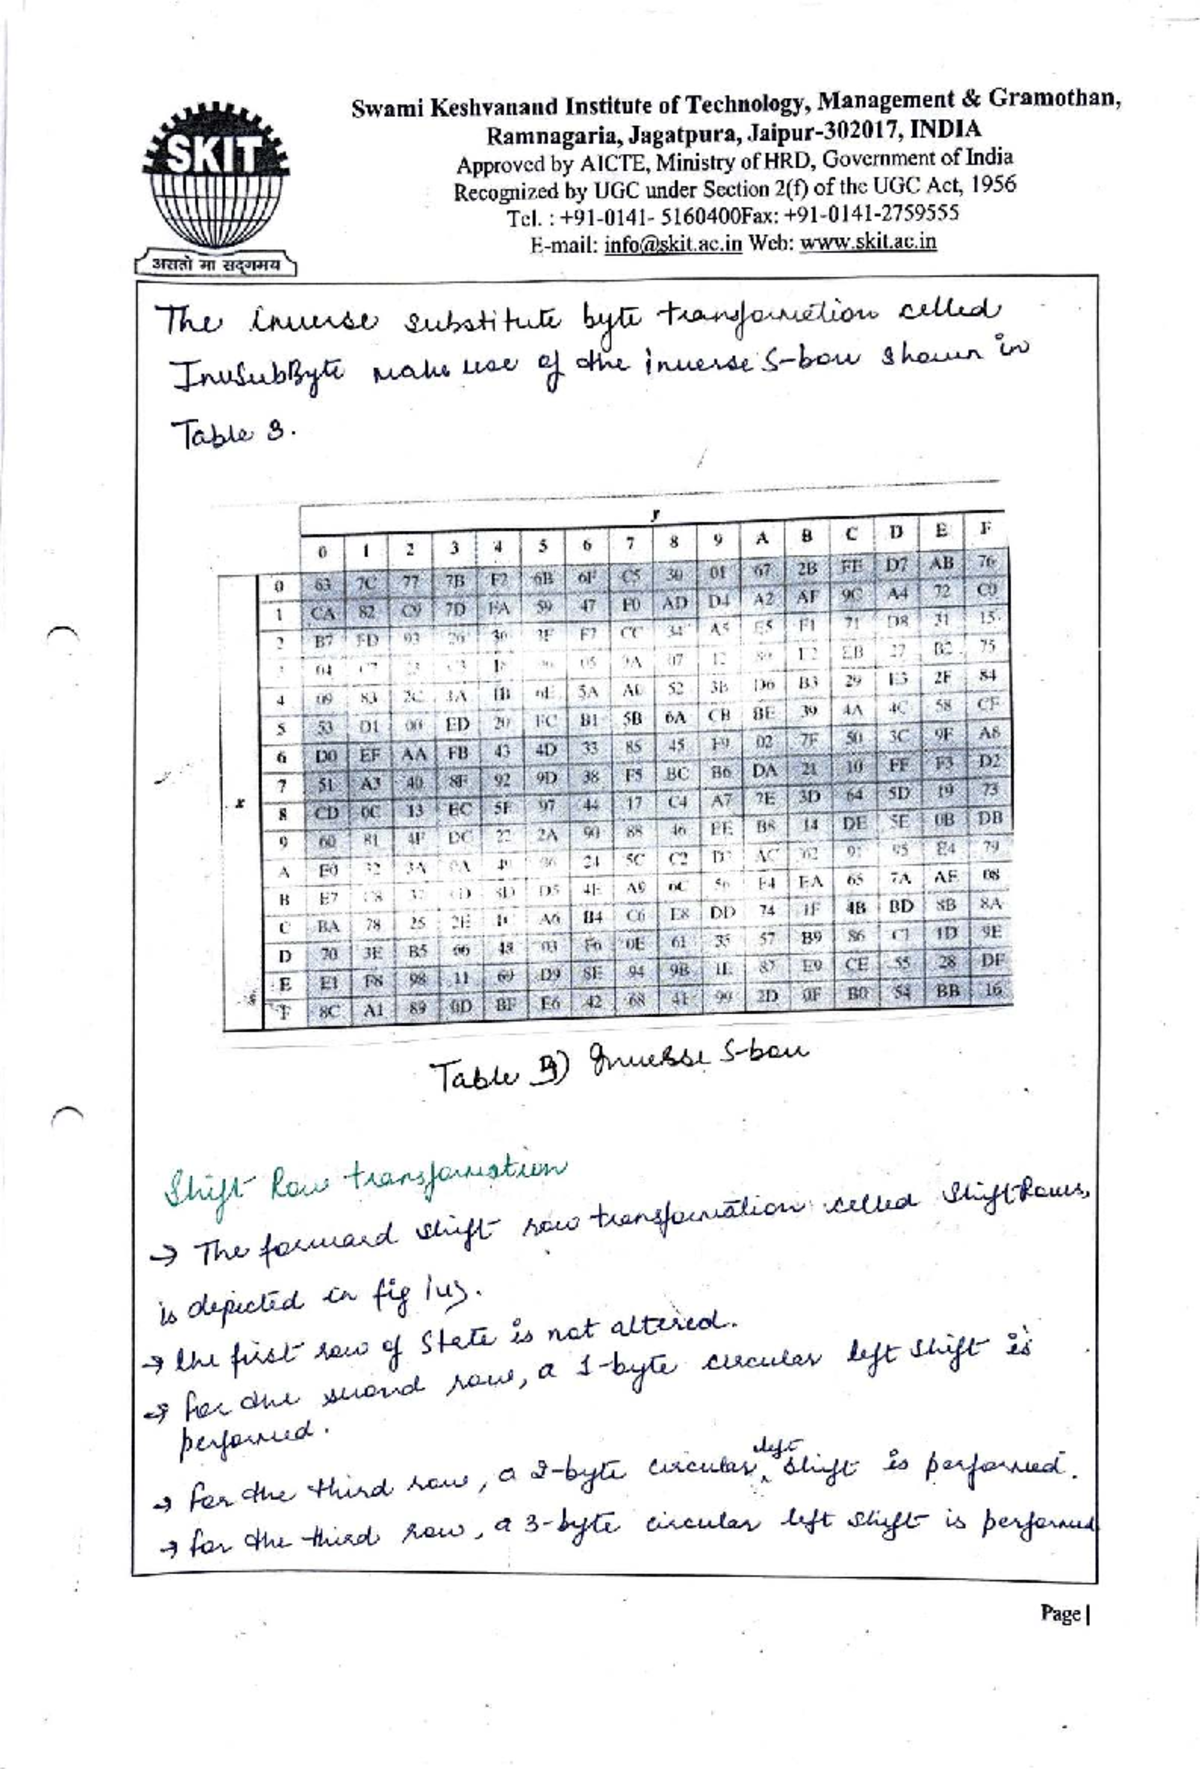 Swami Keshvanand Institute of Technology, Management & Gramothan,
Ramnagaria, Jagatpura, Jaipur-302017, INDIA
Approved by AICTE, Ministry of HRD, Government of India
Recognized by UGC under Section 2(f) of the UGC Act, 1956
Tel. : +91-0141- 5160400Fax: +91-0141-2759555
E-mail: info@skit.ac.in Web: www.skit.ac.in
SKIT
असतो मा सद्गमय
The inverse substitute byte transformation called
InvSubByte make use of the inverse S-box shown in
Table 3.
y
0 1 2 3 4 5 6 7 8 9 A B C D E F
0 63 7C 77 7B F2 6B 6F C5 30 01 67 2B FE D7 AB 76
1 CA 82 C9 7D FA 59 47 F0 AD D4 A2 AF 9C A4 72 C0
2 B7 FD 93 26 36 3F F7 CC 34 A5 E5 F1 71 D8 31 15
3 04 05 9A 07 12 EB 27 B2 75
4 09 83 2C 1A 1B 6E 5A A0 52 3B D6 B3 29 E3 2F 84
5 53 D1 00 ED 20 FC B1 5B 6A CB BE 39 4A 4C 58 CF
6 D0 EF AA FB 43 4D 33 85 45 F9 02 7F 50 3C 9F A8
x 7 51 A3 40 8F 92 9D 38 F5 BC B6 DA 21 10 FF F3 D2
8 CD 0C 13 EC 5F 97 44 17 C4 A7 7E 3D 64 5D 19 73
9 60 81 4F DC 22 2A 90 88 46 EE B8 14 DE 5E 0B DB
A E0 32 3A 0A 49 06 24 5C C2 AC 62 91 95 E4 79
B E7 C8 37 6D 8D D5 4E A9 6C 56 F4 EA 65 7A AE 08
C BA 78 25 2E 1C A6 B4 C6 E8 DD 74 1F 4B BD 8B 8A
D 70 3E B5 66 48 03 F6 0E 61 35 57 B9 86 C1 1D 9E
E E1 F8 98 11 69 D9 8E 94 9B 1E 87 E9 CE 55 28 DF
F 8C A1 89 0D BF E6 42 68 41 99 2D 0F B0 54 BB 16
Table 3) Inverse S-box
Shift Row transformation
→ The forward shift row transformation called ShiftRows,
is depicted in fig
→ the first row of State is not altered.
→ for the second row, a 1-byte circular left shift is
performed.
→ for the third row, a 2-byte circular left shift is performed.
→ for the third row, a 3-byte circular left shift is performed
Page |